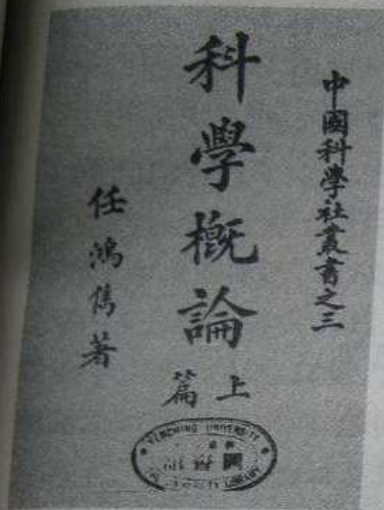 中國科學社叢書之三
科學概論
上篇
任鴻雋著
YENCHING UNIVERSITY
LIBRARY